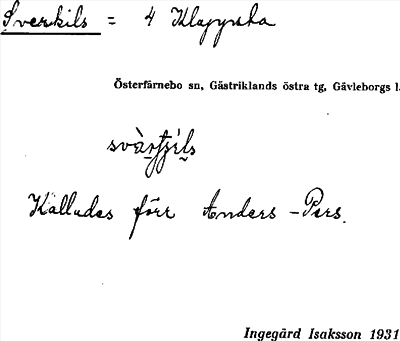 Sverkils = 4 Klappsta
Österfärnebo sn, Gästriklands östra tg, Gävleborgs l.
Kallades förr Anders-Pers.
Ingegärd Isaksson 1931